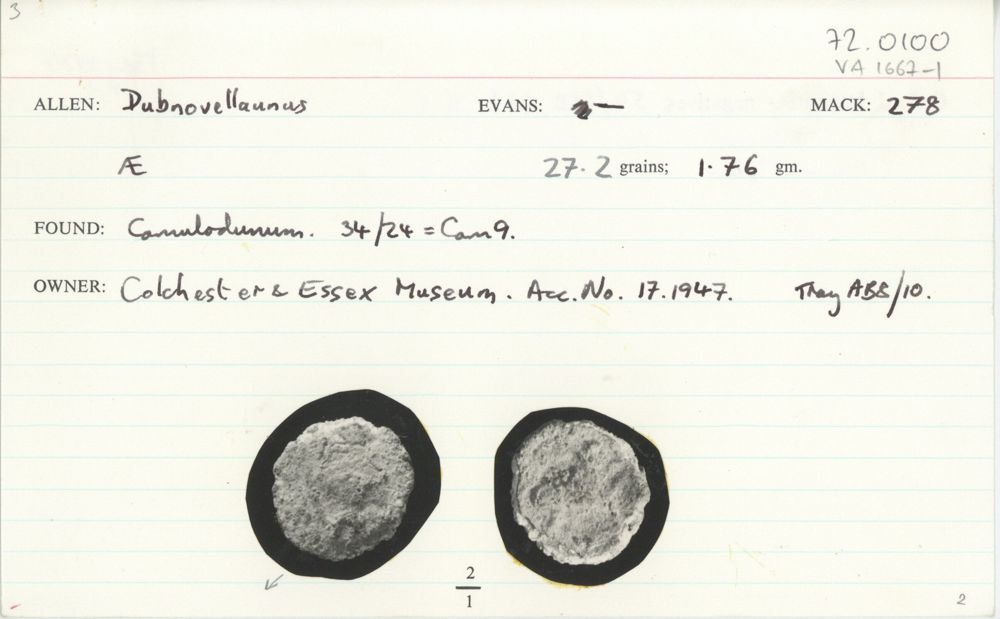 3
72.0100
VA 1667-1
ALLEN: Dubnovellaunus EVANS: — MACK: 278
Æ 27.2 grains; 1.76 gm.
FOUND: Camulodunum. 34/24 = Cam 9.
OWNER: Colchester & Essex Museum. Acc. No. 17.1947. Tray AB8/10.
2
1
2